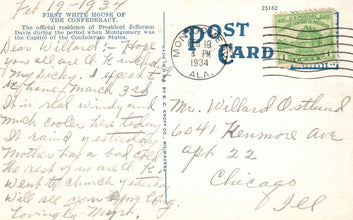 Feb 19, 1934
FIRST WHITE HOUSE OF
THE CONFEDERACY.
The official residence of President Jefferson
Davis during the period when Montgomery was
the Capital of the Confederate States.
Dear Willard:- Hope
you all are O.K. without
My Dicky. I expect to
be home March 3rd
It is real windy and
much cooler here today
It raind yesterday
Mother has a bad cold
the rest of us are O.K.
Went to church yesterday
Will see you before long
Lovingly
25162
POST
CARD
FEB 19
PM
1934
ALA.
Mr. Willard Ostlund
6041 Kenmore Ave
apt 22
Chicago
Ill